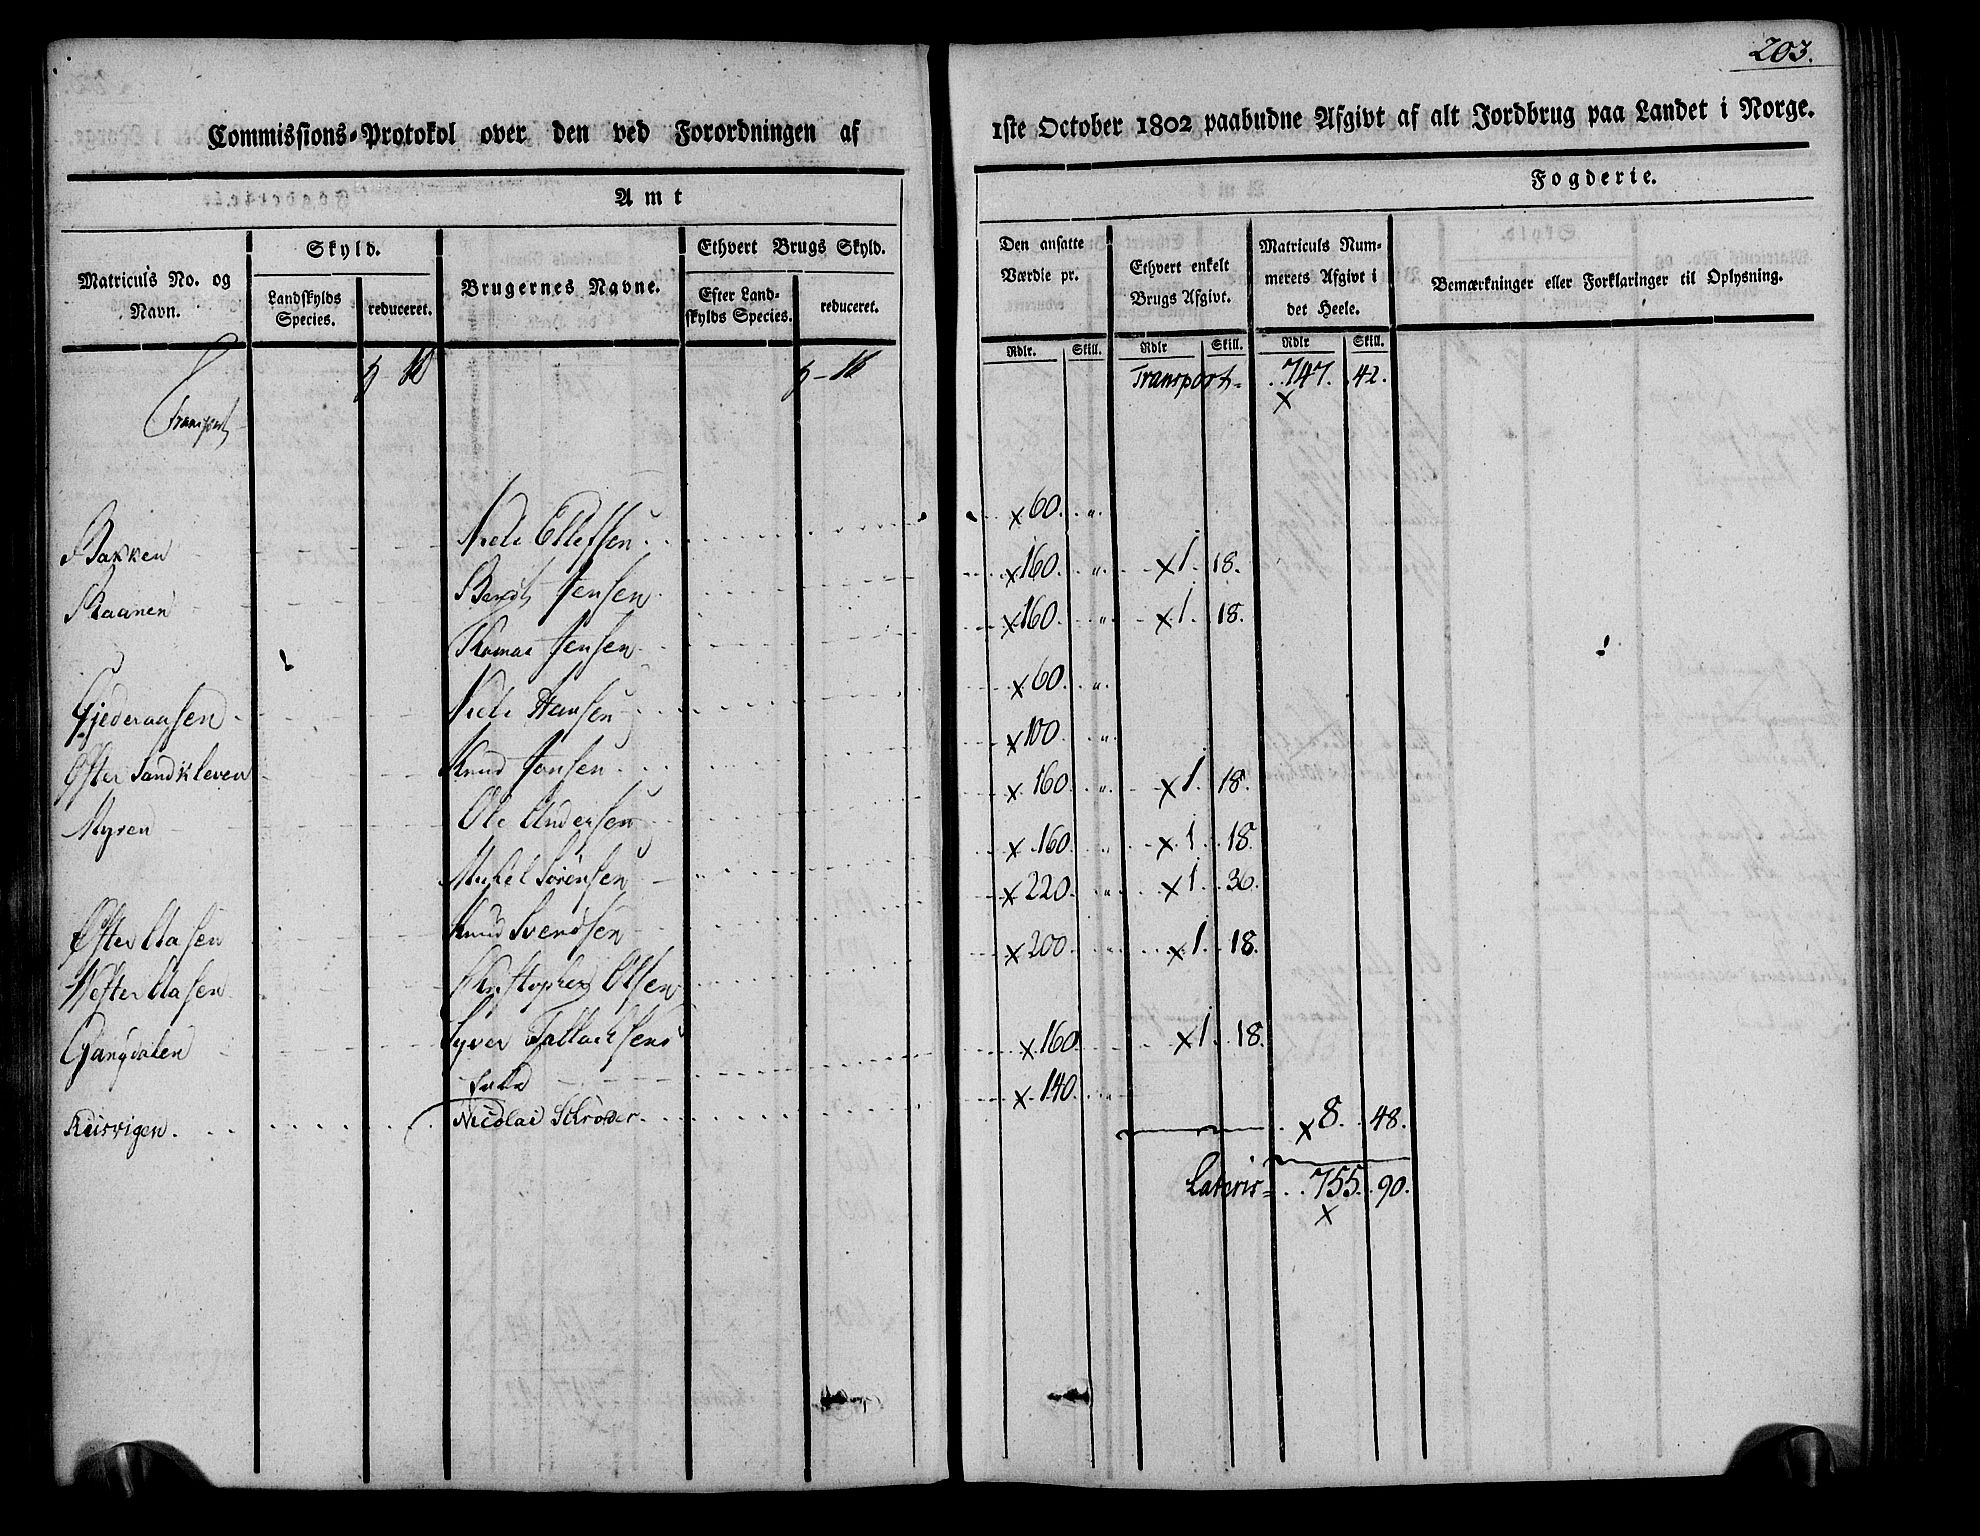 203.
Commissions-Protokol over den ved Forordningen af 1ste October 1802 paabudne Afgivt af alt Jordbrug paa Landet i Norge.
Amt Fogderie.
Matriculs No. og Navn. Skyld. Brugernes Navne. Ethvert Brugs Skyld. Den ansatte Værdie pr. Ethvert enkelt Brugs Afgivt. Matriculs Nummerets Afgivt i det Heele. Bemærkninger eller Forklaringer til Oplysning.
Landskylds Species. reduceret. Efter Landskylds Species. reduceret.
Rdlr. Skill. Rdlr Skill. Rdlr Skill.
Transport Transport 747. 42.
Bakken Niels Ellefsen 60. "
Raanen Berndt Jensen 160. " 1. 18.
Thomas Jensen 160. " 1. 18.
Gjederaasen Niels Hansen 60. "
Øster Sandkleven Knud Jensen 100. "
Myren Ole Andersen 160. " 1. 18.
Michel Sørensen 160. " 1. 18.
Øster Aasen Knud Svendsen 220. " 1. 36.
Wester Aasen Christopher Olsen 200. " 1. 18.
Gangdalen Syver Tallachsens
Enke 160. 1. 18.
Kusvigen. Nicolai Schrøder. 140. "
8. 48.
Lateris 755. 90.